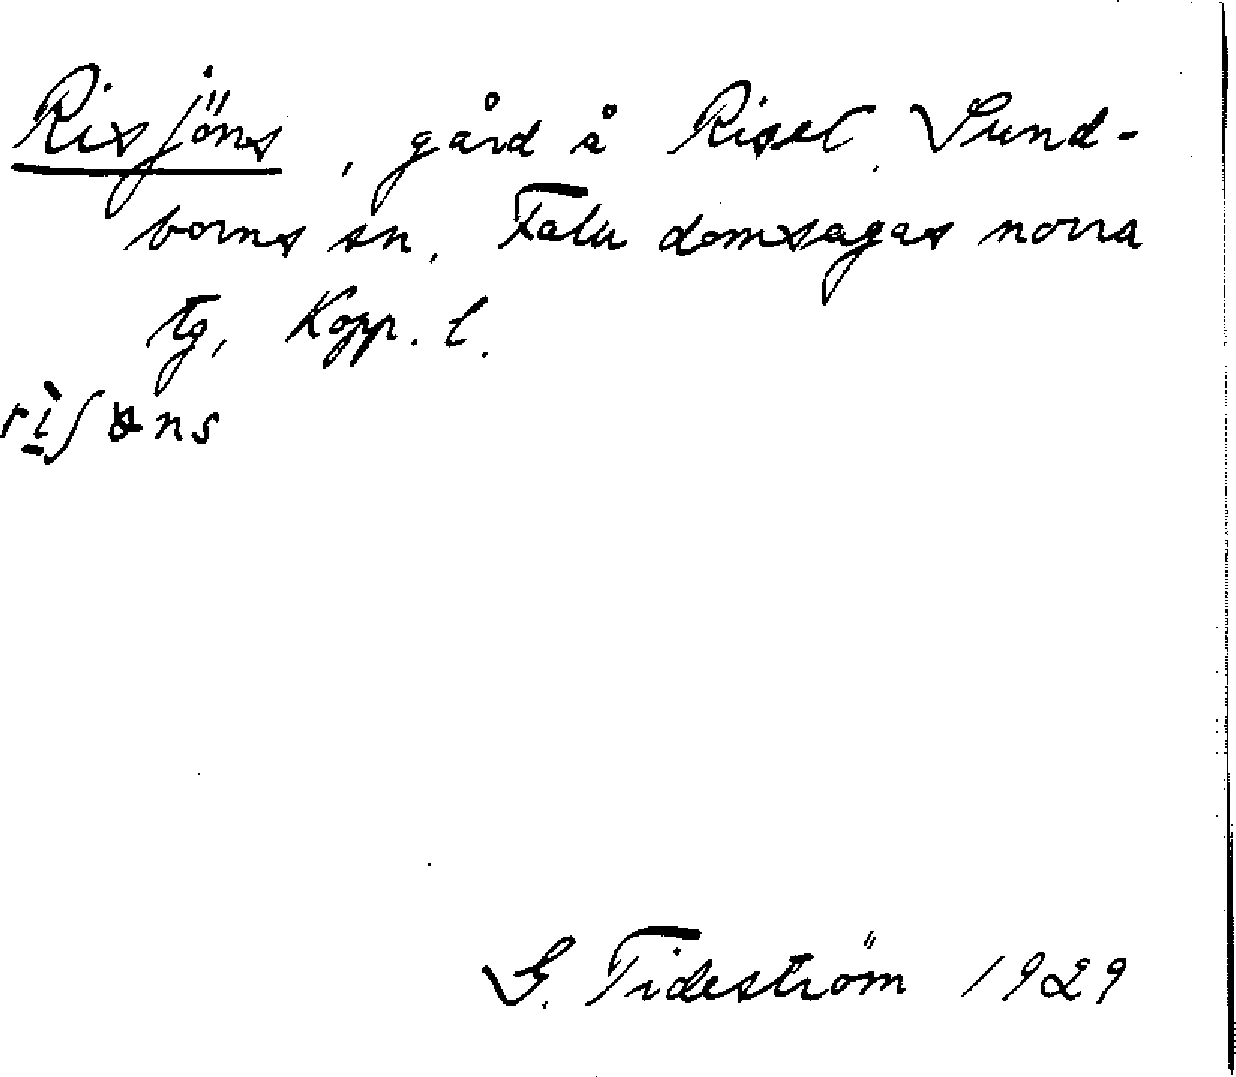 Risjöns, gård å Riset, Sund-
borns sn, Falu domsagas norra
tg, Kopp. l.
G. Tideström 1929